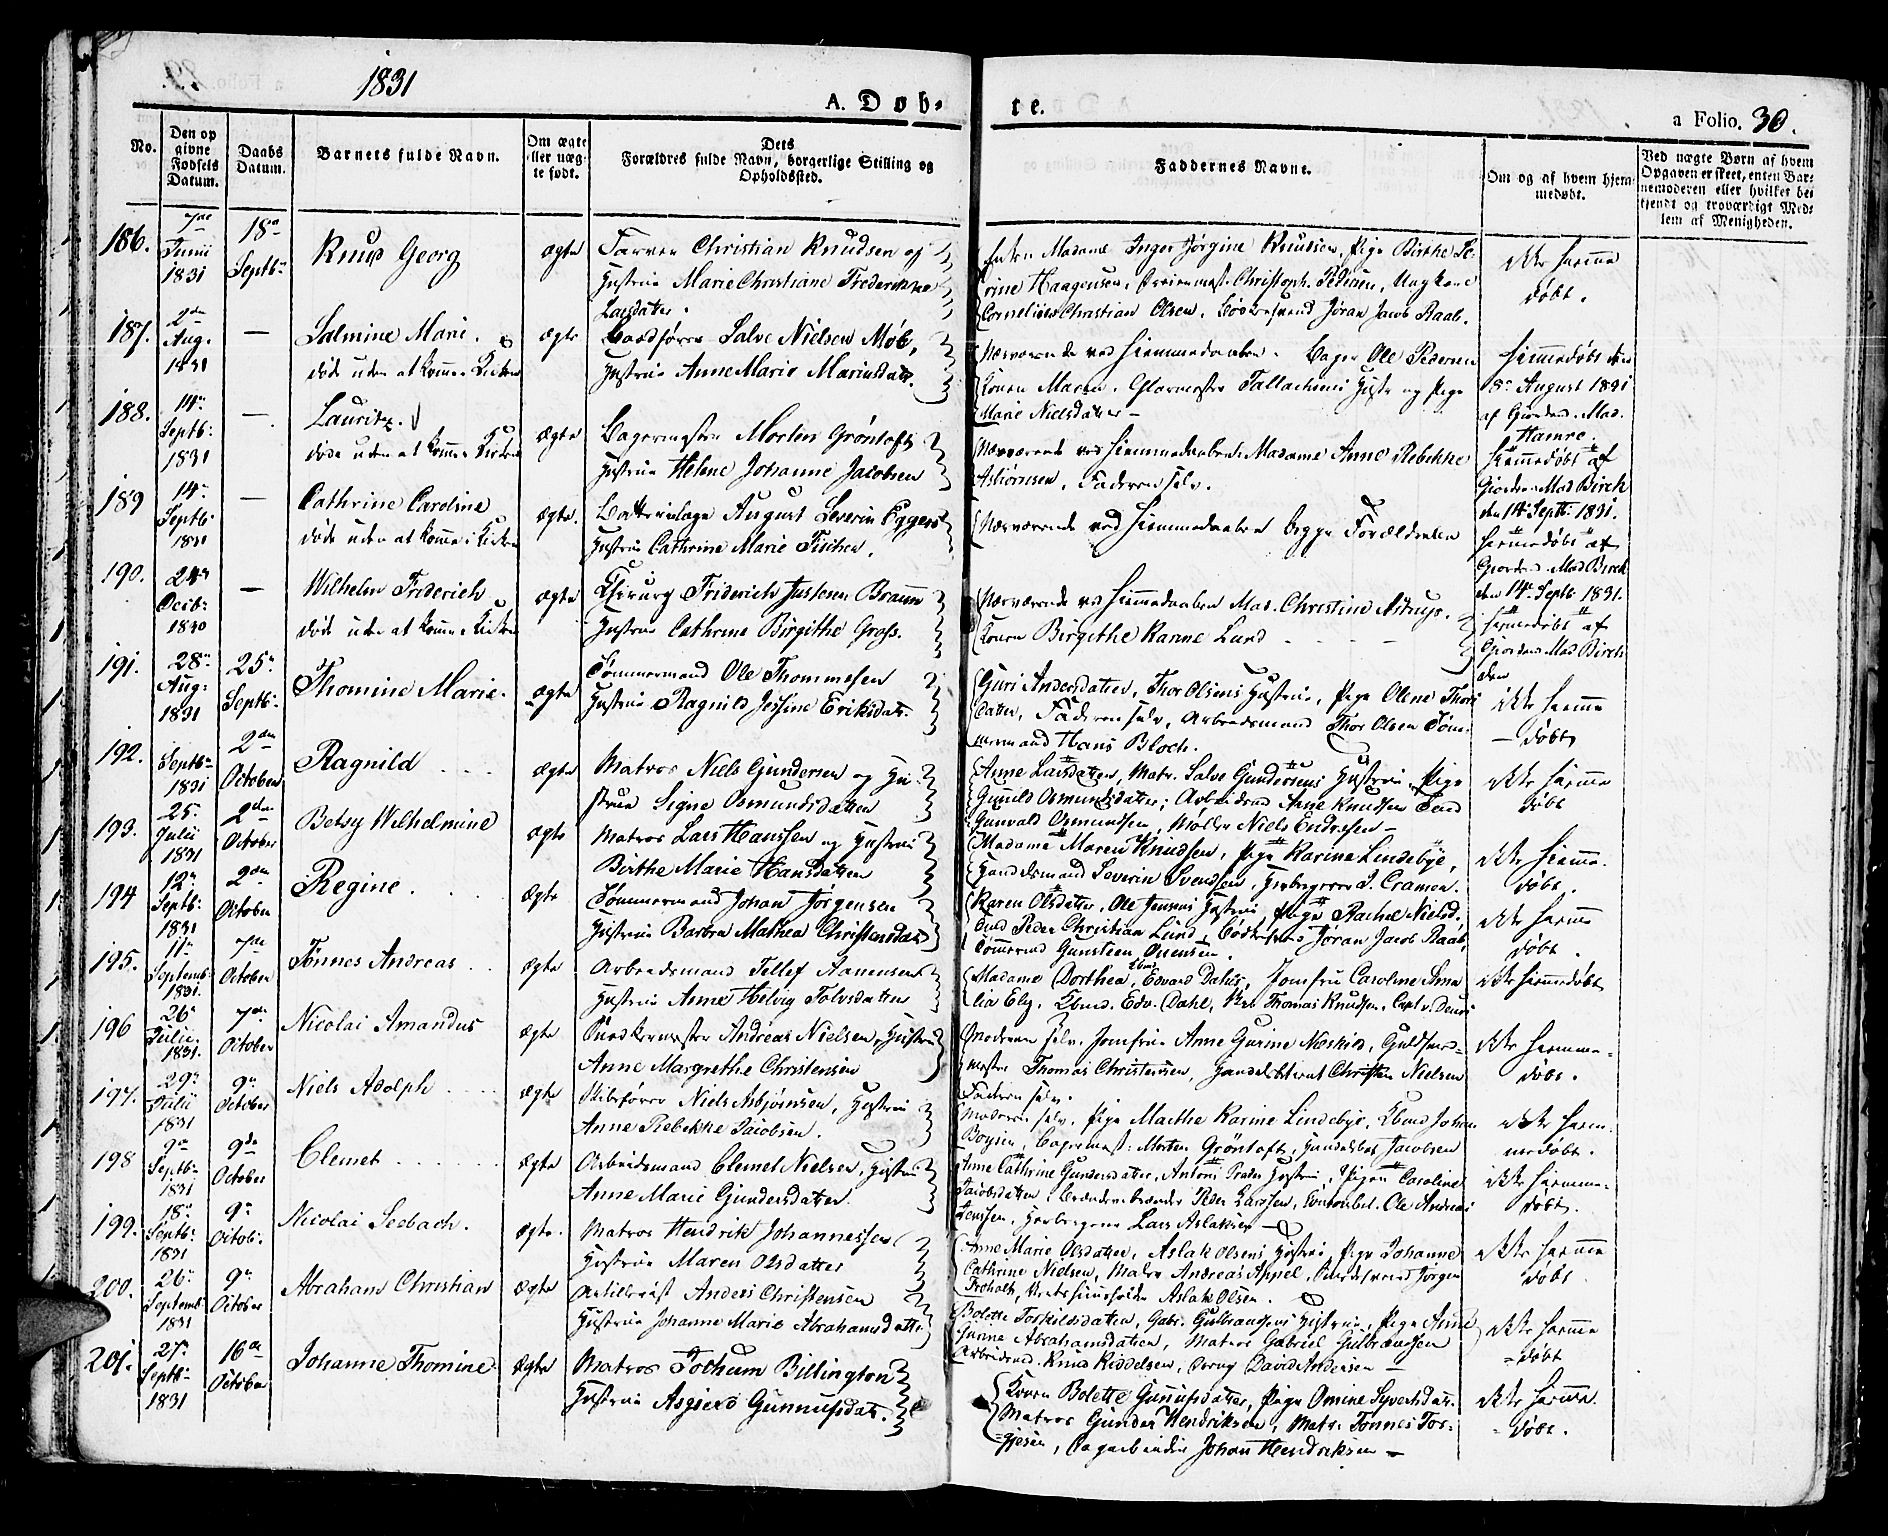 1831
A. Døb-
te.
a Folio. 30.
No.
Den op
givne
Fødsels
Datum.
Daabs
Datum.
Barnets fulde Navn.
Om ægte
eller uæg-
te født.
Dets
Forældres fulde Navn, borgerlige Stilling og
Opholdssted.
Faddernes Navne.
Om og af hvem hjem-
medøbt.
Ved uægte Børn af hvem
Opgaven er skeet, enten Bar-
nemoderen eller hvilket be-
kjendt og troværdigt Med-
lem af Menigheden.
186.
Junii
1831
18de
Septb:
Knud Georg
ægte
Christian Knudsen og
Hustrue Marie Christiane Frederikke
Larsdatter.
Madame Inger Jørgine Knudsen, Pige Birthe Se-
rine Haagensen, Christoph. Pedersen, Ungkarl
Cornelius Christian Olsen, Jøran Jacob Raab.
ikke hjemme
døbt.
187.
2den
Aug:
1831
—
Salmine Marie.
døde uden at komme i Kirken
ægte
Baadfører Salve Nielsen Møb,
Hustrue Anne Marie
Nærværende ved Hjemmedaaben. Bager Ole Pedersen
Konen Maren. og Pige
Marie Nielsdatter —
hjemmedøbt den
8de August 1831
af Giordem. Mad.
Hamre.
188.
14de
Septb:
1831
—
Lauritz.
døde uden at komme i Kirken
ægte
Bagermester Morten Grøntoft
Hustrue Helene Johanne Jacobsen
Nærværende ved Hjemmedaaben Madame Anne Rebekke
Asbiørnsen, Faderen selv.
hjemmedøbt af
Giordem. Mad Birch
den 14de Septb: 1831.
189
14de
Septb:
1831
—
Cathrine Caroline
døde uden at komme i Kirken
ægte.
August Severin Eggers
Hustrue Cathrine Marie Fischer.
Nærværende ved Hjemmedaaben begge Forældrene
hjemmedøbt af
Giordem. Mad Birch
den 14de Septb. 1831.
190.
24de
Octb:
1830
—
Wilhelm Friderich
døde uden at komme i Kirken
ægte
Chirurg Friderich Justesen Braun
Hustrue Cathrine Birgithe Grass.
Nærværende ved Hjemmedaaben Mad. Christine Astrup.
Konen Birgithe Karine Lund
hjemmedøbt af
Giordem. Mad Birch
den
191.
28de
Aug:
1831
25de
Septb:
Thomine Marie.
ægte
Tømmermand Ole Thommesen
Hustrue Ragnild Jessine Eriksdatr.
Guri Andersdatter, Thor Olsens Hustrue, Pige Olene Thors
datter, Faderen selv, Arbeidsmand Thor Olsen Tøm-
mermand Hans Bloch.
ikke hjemme
døbt
192.
Septb:
1831
2den
October
Ragnild
ægte
Matros Niels Gundersen og Hu-
strue Signe Osmundsdatter
Anne Larsdatter, Matr. Salve Gundersens Hustrue, Pige
Gunild Osmundsdatter; Knudsen
Gunvald Osmundsen, Møller Niels Endresen —
ikke hjemme
døbt
193.
25de
Julii
1831
2den
October
Betsy Wilhelmine
ægte
Matros Lars Hanssen og Hustrue
Birthe Marie Hansdatter
Madame Maren Knudsen, Pige Karine Lindebye,
Handelsmand Severin Svendsen, J. Cramer.
ikke hjemme
døbt.
194
12te
Septb:
1831
2den
October
Regine.
ægte
Tømmermand Johan Jørgensen
Hustrue Barbra Mathea Christensdatr
Karen Olsdatter, Ole Jensens Hustrue, Pige Rachel Nielsd.
Peder Christian Lund, Jøran Jacob Raab,
Tømmermd Gunsteen
ikke hjemme
døbt.
195.
11te
Septemb:
1831.
7de
October
Tønnes Andreas
ægte
Arbeidsmand Tellef Aanensen
Hustrue Anne Helvig Tolvsdatter
Madame Dorthea Edvard Dahls, Jomfru Caroline Ama-
lia Edv. Dahl, Thomas Knudsen,
ikke hjemmedøbt
196
26de
Julii
1831.
7de
October
Nicolai Amandus
ægte
Andreas Nielsen, Hustrue
Anne Margrethe Christensen
Moderen selv, Jomfrue Anne Gurine Neskild, Guldsmed-
mester Thomas Christensen, Christen Nielsen
Faderen selv.
ikke hjemme-
døbt.
197.
29de
Julii
1831
9de
October
Niels Adolph
ægte
Skibsfører Niels Asbjørnsen, Hustrue
Anne Rebekke Jacobsen.
Moderen selv, Pige Marthe Karine Lindebye, Johan
Boysen, Bagermest: Morten Grøntoft, Jacobsen
ikke hjem-
medøbt.
198
9de
Septb:
1831
9de
October
Clemet
ægte
Arbeidsmand Clemet Nielsen, Hustrue
Anne Marie Gundersdatter
Anne Cathrine Gundersdatter, Hustrue, Pigen Caroline
Jacobsdatter, Peder Larssen, Ole Andreas
Jenssen, Lars Aslaksen
ikke hjemme-
døbt.
199.
18de
Septb:
1831
9de
Octob:
Nicolai Seebach.
ægte.
Matros Hendrik Johannessen
Hustrue Maren Olsdatter
Anne Marie Olsdatter, Aslak Olsens Hustrue, Pige Johanne
Cathrine Nielsen, Matr. Andreas Appel, Jørgen
Froholt, Aslak Olsen.
ikke hjemme
døbt
200.
26de
Septemb:
1831
9de
October
Abraham Christian
ægte
Artillerist Anders Christensen
Hustrue Johanne Marie Abrahamsdatter
Bolette Torkildsdatter, Gabr. Gulbrandsens Hustrue, Pige Anne
Gurine Abrahamsdatter, Matros Gabriel Gulbrandsen
Arbeidsmd. Knud Kiddelsen, David Andersen —
ikke hjemme
døbt
201.
27de
Septb:
1831
16de
October
Johanne Thomine
ægte
Matros Jochum Billington
Hustrue Asgierd Gunnufsdatr.
Konen Bolette Gunnufsdatter, Pige Omine Syvertsdatr.
Matros Gunder Hendriksen, Matr. Tønnes Tor-
gjesen, Johan Hendriksen —
ikke hjemme
døbt.